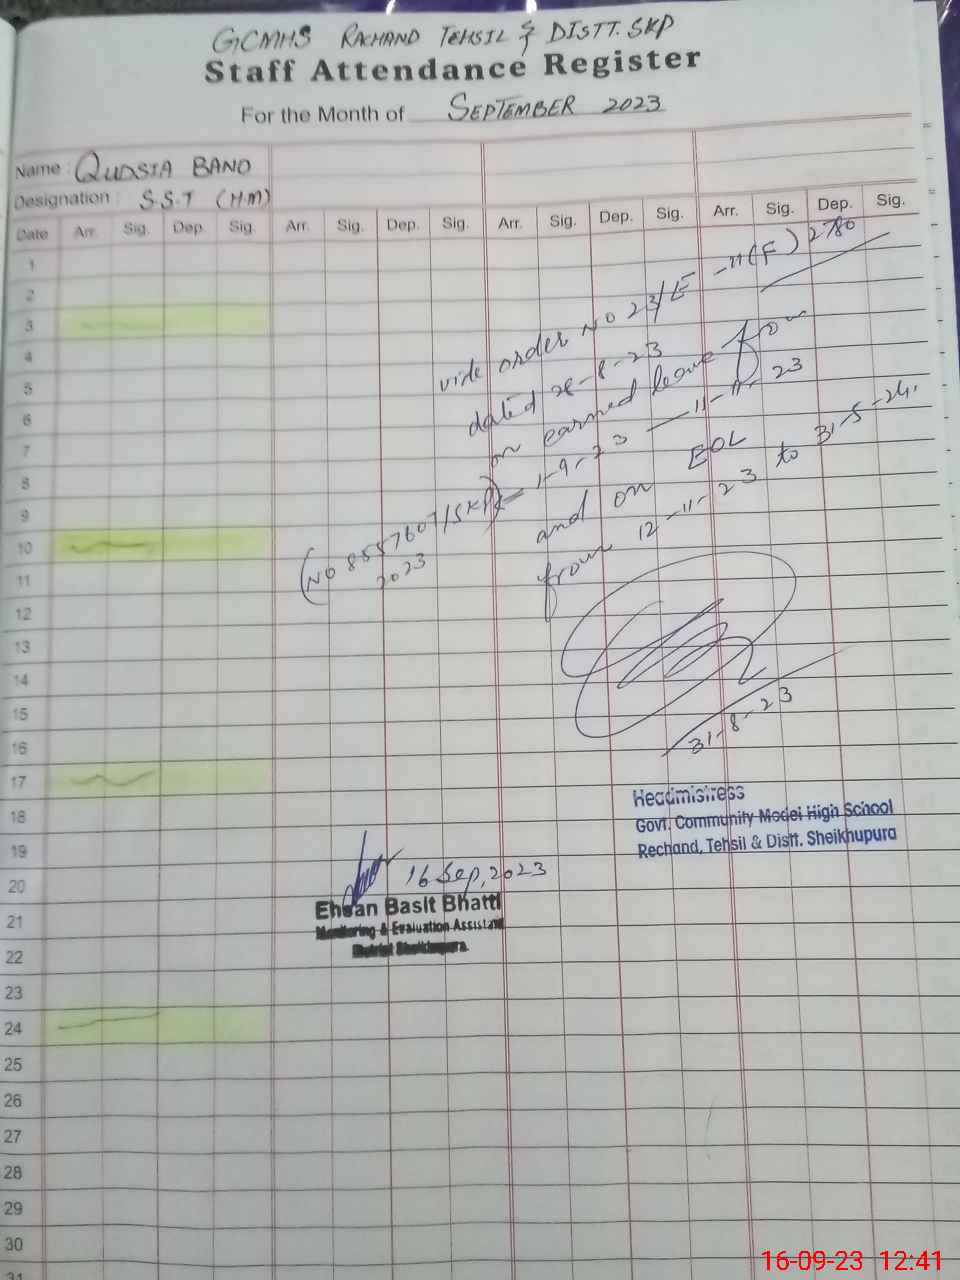 GCMHS RACHAND TEHSIL & DISTT. SKP
Staff Attendance Register
For the Month of SEPTEMBER 2023
Name : QUDSIA BANO
Designation : S.S.T (H.M)
Date Arr. Sig. Dep. Sig. Arr. Sig. Dep. Sig. Arr. Sig. Dep. Sig. Arr. Sig. Dep. Sig.
1
2
3
4
5
6
7
8
9
10
11
12
13
14
15
16
17
18
19
20
21
22
23
24
25
26
27
28
29
30
31
vide order NO 23/E-11(F) 2780
dated 28-8-23
on earned leave from
1-9-23 — 11-11-23
(NO 8557607/SKP)
2023
and on EOL
from 12-11-23 to 31-5-24.
31-8-23
Headmistress
Govt. Community Model High School
Rechand, Tehsil & Distt. Sheikhupura
16 Sep, 2023
Ehsan Basit Bhatti
Monitoring & Evaluation Assistant
District Sheikhupura
16-09-23 12:41